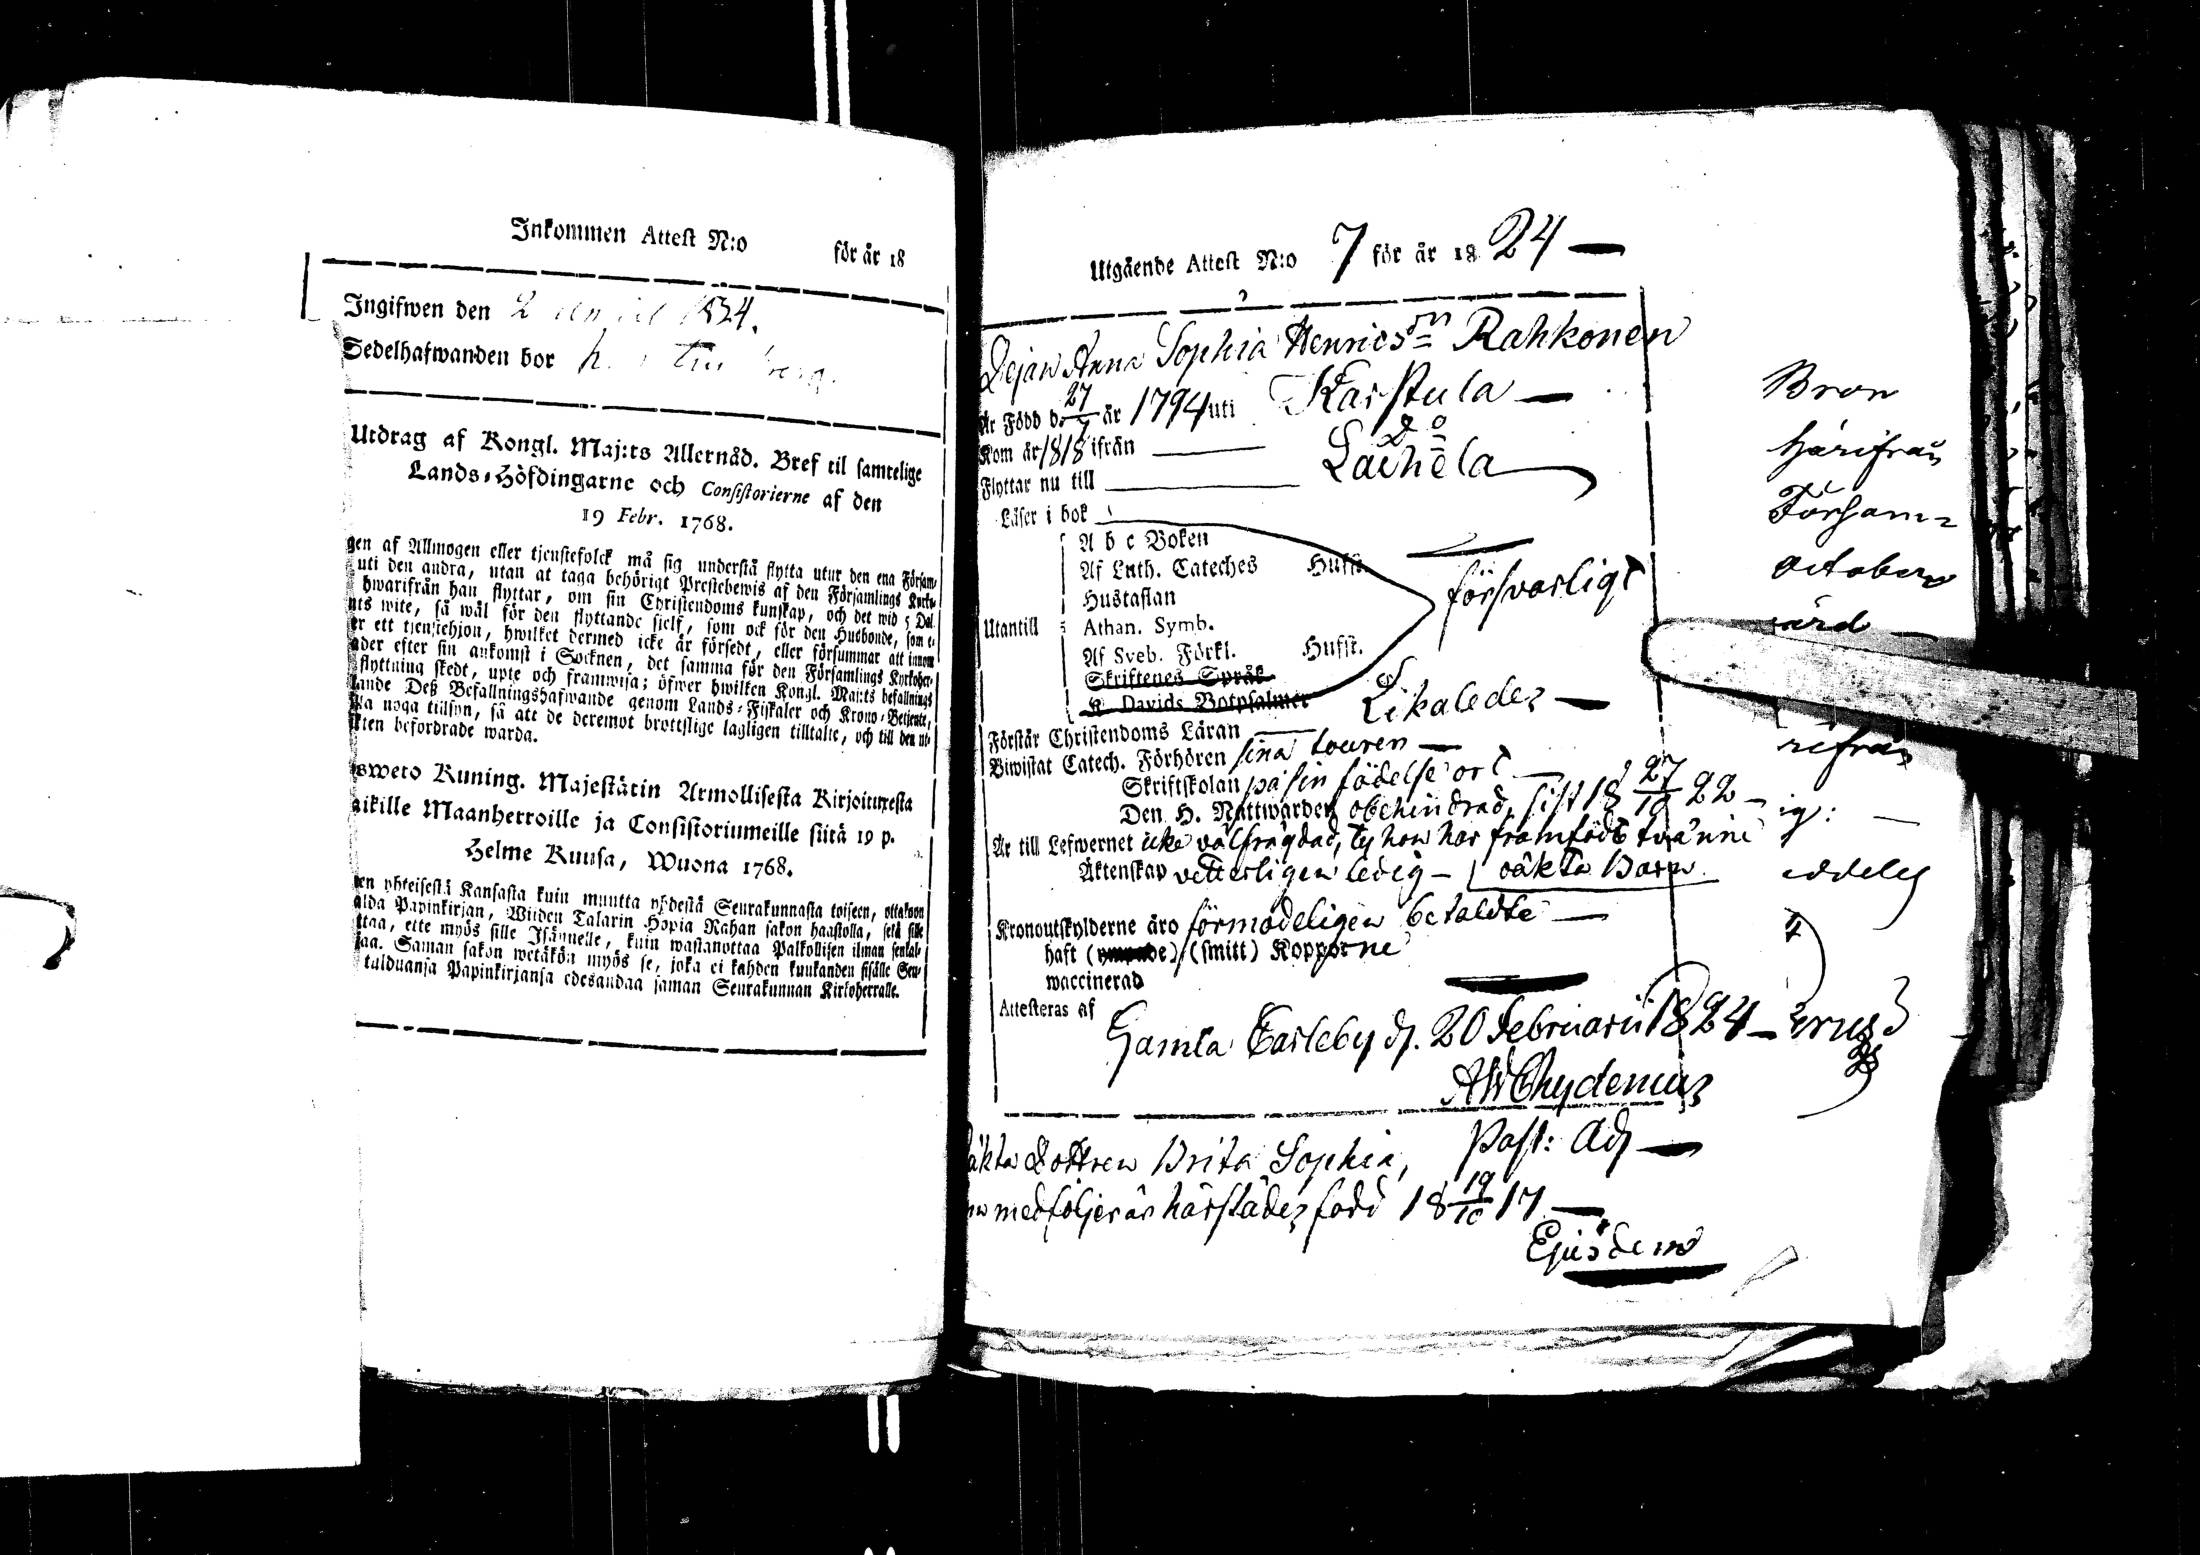 Inkommen Attest N:o för år 18
Ingifwen den 2 1824.
Sedelhafwanden bor
Utdrag af Kongl. Maj:ts Allernåd. Bref til samtelige
Lands-Höfdingarne och Consistorierne af den
19 Febr. 1768.
gen af Allmogen eller tjenstefolck må sig understå flytta utur den ena Försam-
uti den andra, utan at taga behörigt Prestebewis af den Församlings Kyrko-
hwarifrån han flyttar, om sin Christendoms kunskap, och det wid 5 Dal.
nts wite, så wäl för den flyttande sielf, som ock för den Husbonde, som e-
er ett tjenstehjon, hwilket dermed icke är försedt, eller försummar att innom
ader efter sin ankomst i Socknen, det samma för den Församlings Kyrkoher-
flyttning skedt, upte och framwisa; öfwer hwilken Kongl. Maj:ts befallnings
lande Deß Befallningshafwande genom Lands-Fiskaler och Krono-Betjente,
lla noga tillsyn, så att de deremot brottslige lagligen tilltalte, och till den ut-
kten befordrade warda.
sweto Kuning. Majestätin Armollisesta Kirjoituxesta
aikille Maanherroille ja Consistoriumeille siitä 19 p.
Helme Kuusa, Wuona 1768.
en yhteisestä Kansasta kuin muutta yhdestä Seurakunnasta toiseen, ottakoon
alda Papinkirjan, Wiiden Talarin Hopia Rahan sakon haastolla, sekä sille
ttaa, ette myös sille Isännelle, kuin wastanottaa Palkollisen ilman senkal-
jaa. Saman sakon wetäkön myös se, joka ei kahden kuukauden sisälle Seu-
tulduansa Papinkirjansa edesandaa saman Seurakunnan Kirkoherralle.
Utgående Attest N:o 7 för år 18 24 —
Pejan Anna Sophia Henricsdn Rahkonen
Är Född d. 27/7 år 1794 uti Karstula —
Kom år 1818 ifrån Do
Flyttar nu till Lachela
Läser i bok
A b c Boken
Af Luth. Cateches Hufst.
Hustaflan försvarligt
Utantill Athan. Symb.
Af Sveb. Förkl. Hufst.
Skriftenes Språk
K. Davids Botpsalmer
Förstår Christendoms Läran Likaledes —
Biwistat Catech. Förhören sina touren —
Skriftskolan på sin födelse ort —
Den H. Nattwarden obehindrad, sist 18 27/10 22 —
Är till Lefwernet icke välfrägdad, ty hon har framfödt tvänne
Äktenskap vetterligen ledig — oäkta Barn
Kronoutskylderne äro förmodeligen betaldte —
haft (ympade) (smitt) Kopporne
waccinerad
Attesteras af
Gamla Carleby d. 20 Februarii 1824 —
AW Chydenius
Past: Adj —
äkta Dottren Brita Sophia,
medföljer är härstädes född 18 19/10 17 —
Ejusdem
Bron
härifrån
Församl
october
ärd —
refrån
ig: —
eddeles